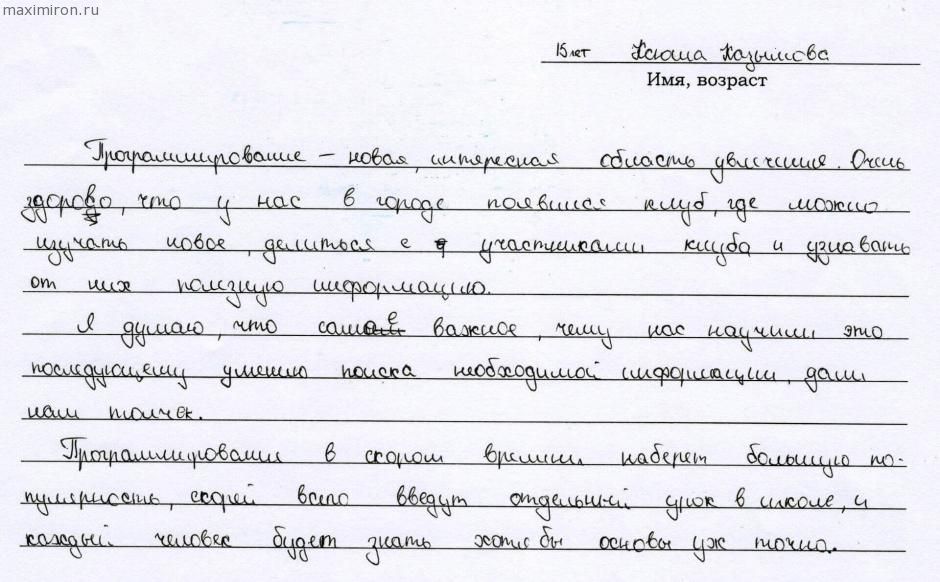 maximiron.ru
15 лет Ксюша Казымова
Имя, возраст
Программирование – новая, интересная область увлечения. Очень
здорово, что у нас в городе появился клуб, где можно
изучать новое, делиться с участниками клуба и узнавать
от них полезную информацию.
Я думаю, что самое важное, чему нас научили это
последующему умению поиска необходимой информации, дали
нам толчек.
Программирование в скором времени наберет большую по-
пулярность, скорей всего введут отдельный урок в школе, и
каждый человек будет знать хотя бы основы уж точно.